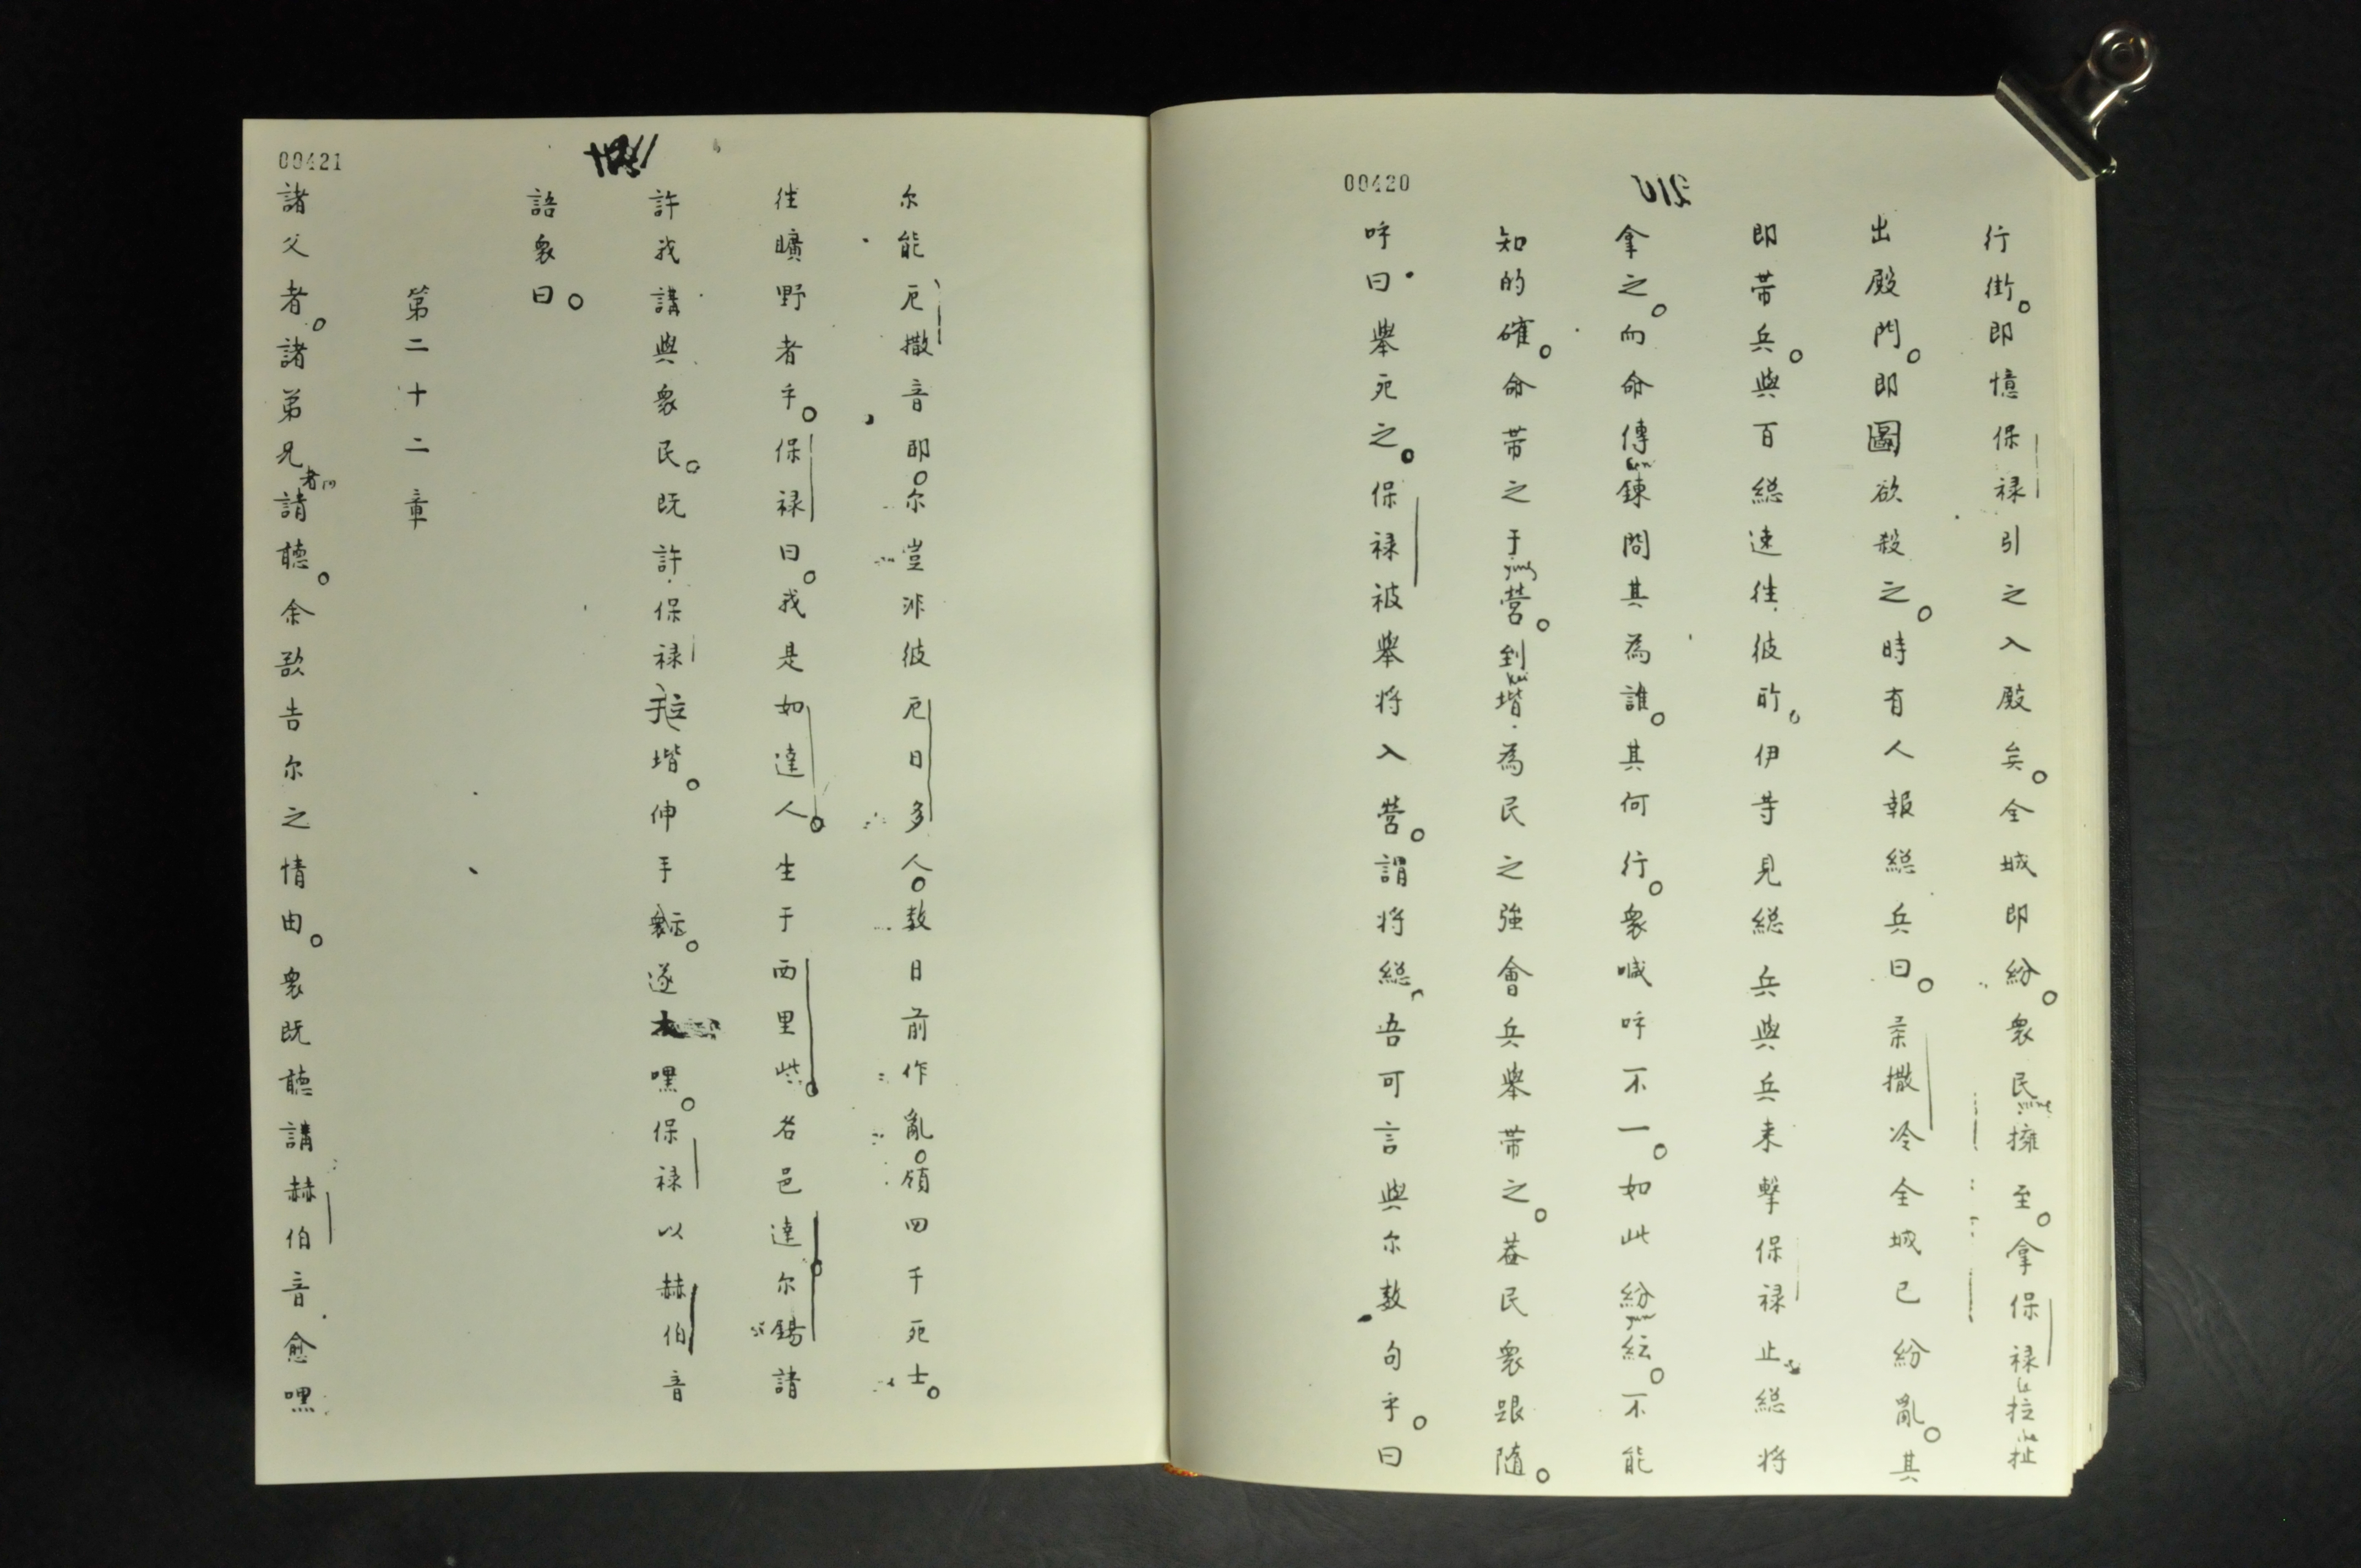 00420
行街。即憶保禄引之入殿矣。全城即紛。衆民擁至。拿保禄拉扯
出殿門。即圖欲殺之。時有人報総兵曰。柔撒冷全城已紛亂。其
即带兵。與百総速徃彼所。伊等見総兵與兵来擊保禄止。総将
拿之。而命傳鍊問其為誰。其何行。衆喊呼不一。如此紛紜。不能
知的確。命带之于營。到堦為民之強會兵舉带之。葢民衆跟随。
呼曰舉死之。保禄被舉将入營。謂将総吾可言與尔数句乎。曰
00421
尔能厄撒音即。尔豈非彼厄日多人。数日前作亂。領四千死士。
徃曠野者乎。保禄曰。我是如達人。生于西里些。名邑達尔錫請
許我講與衆民。既許保禄立于堦。伸手示衆。遂嘿。保禄以赫伯音
語衆曰。
第二十二章
諸父者。諸弟兄者請聽。余欲告尔之情由。衆既聽講赫伯音愈嘿